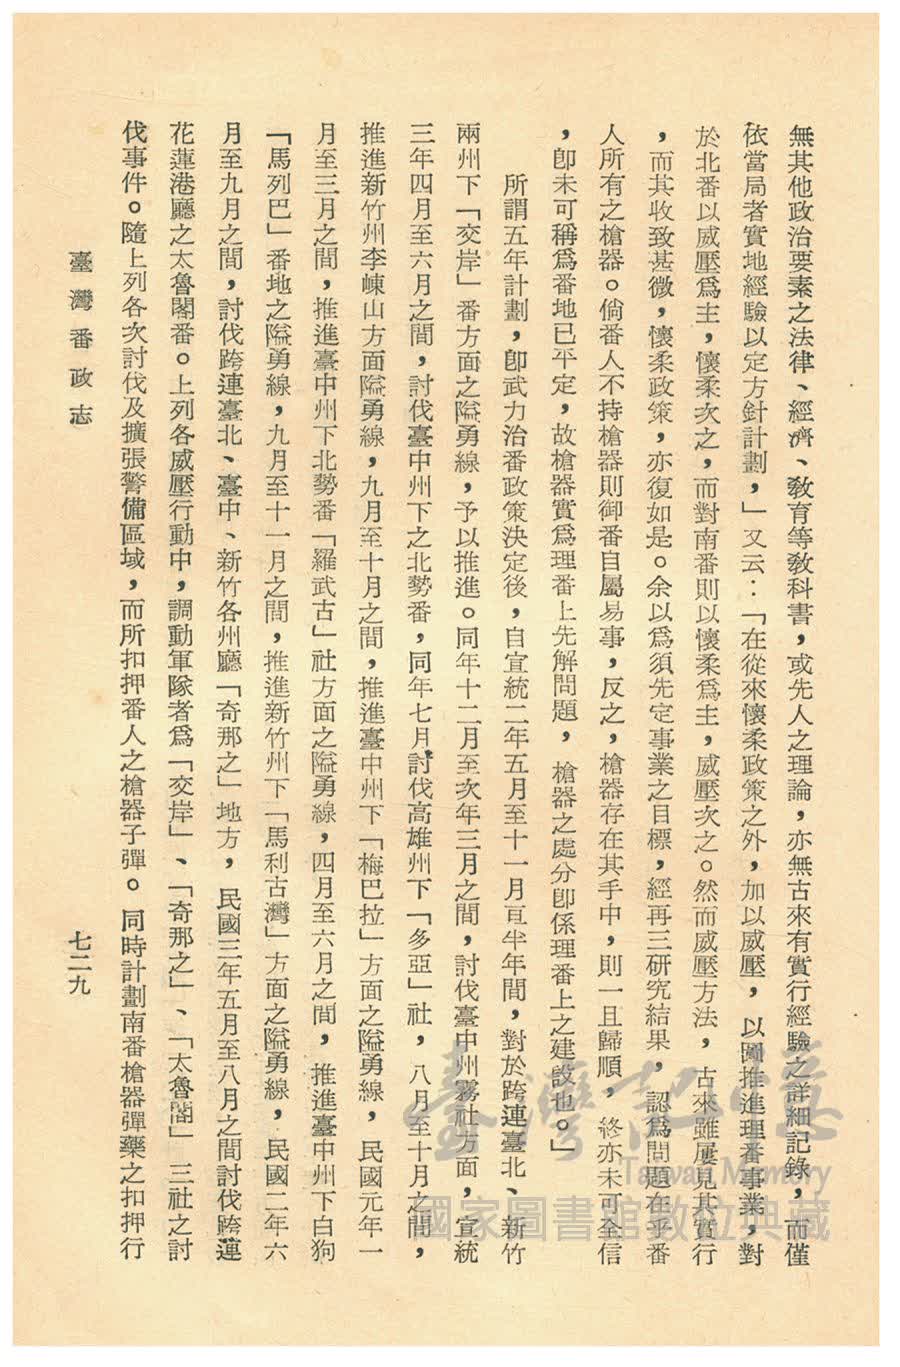 無其他政治要素之法律、經濟、教育等教科書，或先人之理論，亦無古來有實行經驗之詳細記錄，而僅
依當局者實地經驗以定方針計劃，」又云：「在從來懷柔政策之外，加以威壓，以圖推進理番事業，對
於北番以威壓爲主，懷柔次之，而對南番則以懷柔爲主，威壓次之。然而威壓方法，古來雖屢見其實行
，而其收致甚微，懷柔政策，亦復如是。余以爲須先定事業之目標，經再三研究結果，認爲問題在乎番
人所有之槍器。倘番人不持槍器則御番自屬易事，反之，槍器存在其手中，則一旦歸順，終亦未可全信
，卽未可稱爲番地已平定，故槍器實爲理番上先解問題，槍器之處分卽係理番上之建設也。」
所謂五年計劃，卽武力治番政策決定後，自宣統二年五月至十一月亘半年間，對於跨連臺北、新竹
兩州下「交岸」番方面之隘勇線，予以推進。同年十二月至次年三月之間，討伐臺中州霧社方面，宣統
三年四月至六月之間，討伐臺中州下之北勢番，同年七月討伐高雄州下「多亞」社，八月至十月之間，
推進新竹州李崠山方面隘勇線，九月至十月之間，推進臺中州下「梅巴拉」方面之隘勇線，民國元年一
月至三月之間，推進臺中州下北勢番「羅武古」社方面之隘勇線，四月至六月之間，推進臺中州下白狗
「馬列巴」番地之隘勇線，九月至十一月之間，推進新竹州下「馬利古灣」方面之隘勇線，民國二年六
月至九月之間，討伐跨連臺北、臺中、新竹各州廳「奇那之」地方，民國三年五月至八月之間討伐跨連
花蓮港廳之太魯閣番。上列各威壓行動中，調動軍隊者爲「交岸」、「奇那之」、「太魯閣」三社之討
伐事件。隨上列各次討伐及擴張警備區域，而所扣押番人之槍器子彈。同時計劃南番槍器彈藥之扣押行
臺灣番政志
七二九
臺灣記憶
Taiwan Memory
國家圖書館數位典藏